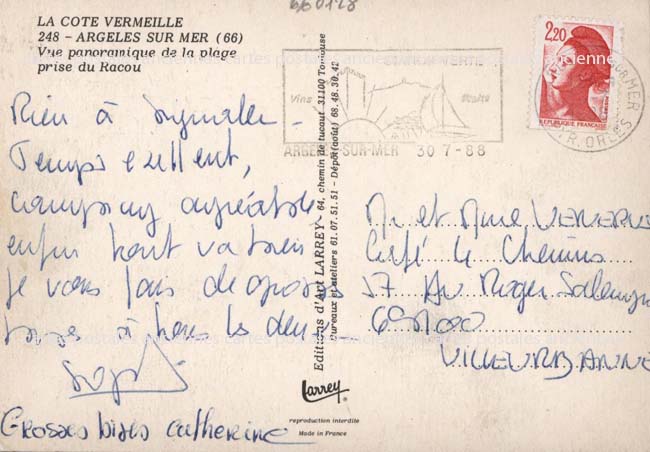 6/60128
LA COTE VERMEILLE
248 - ARGELES SUR MER (66)
Vue panoramique de la plage
prise du Racou
Rien à signaler -
Temps exellent,
camping agréable
enfin tout va bien
Je vous fais de grosses
bises à tous les deux
Grosses bises Catherine
Editions d'Art LARREY - 64, chemin de tucaut 31100 Toulouse
Bureaux et ateliers 61.07.51.51 - Dépôt (août) 68.48.30.42
Larrey
reproduction interdite
Made in France
STATION VERTE
Vins
ARGELES-SUR-MER 30 7-88
2,20
REPUBLIQUE FRANCAISE
MER
PYR. ORLES
Mr et Mme
Café le Chemins
37 Av Roger Salengro
VILLEURBANNE